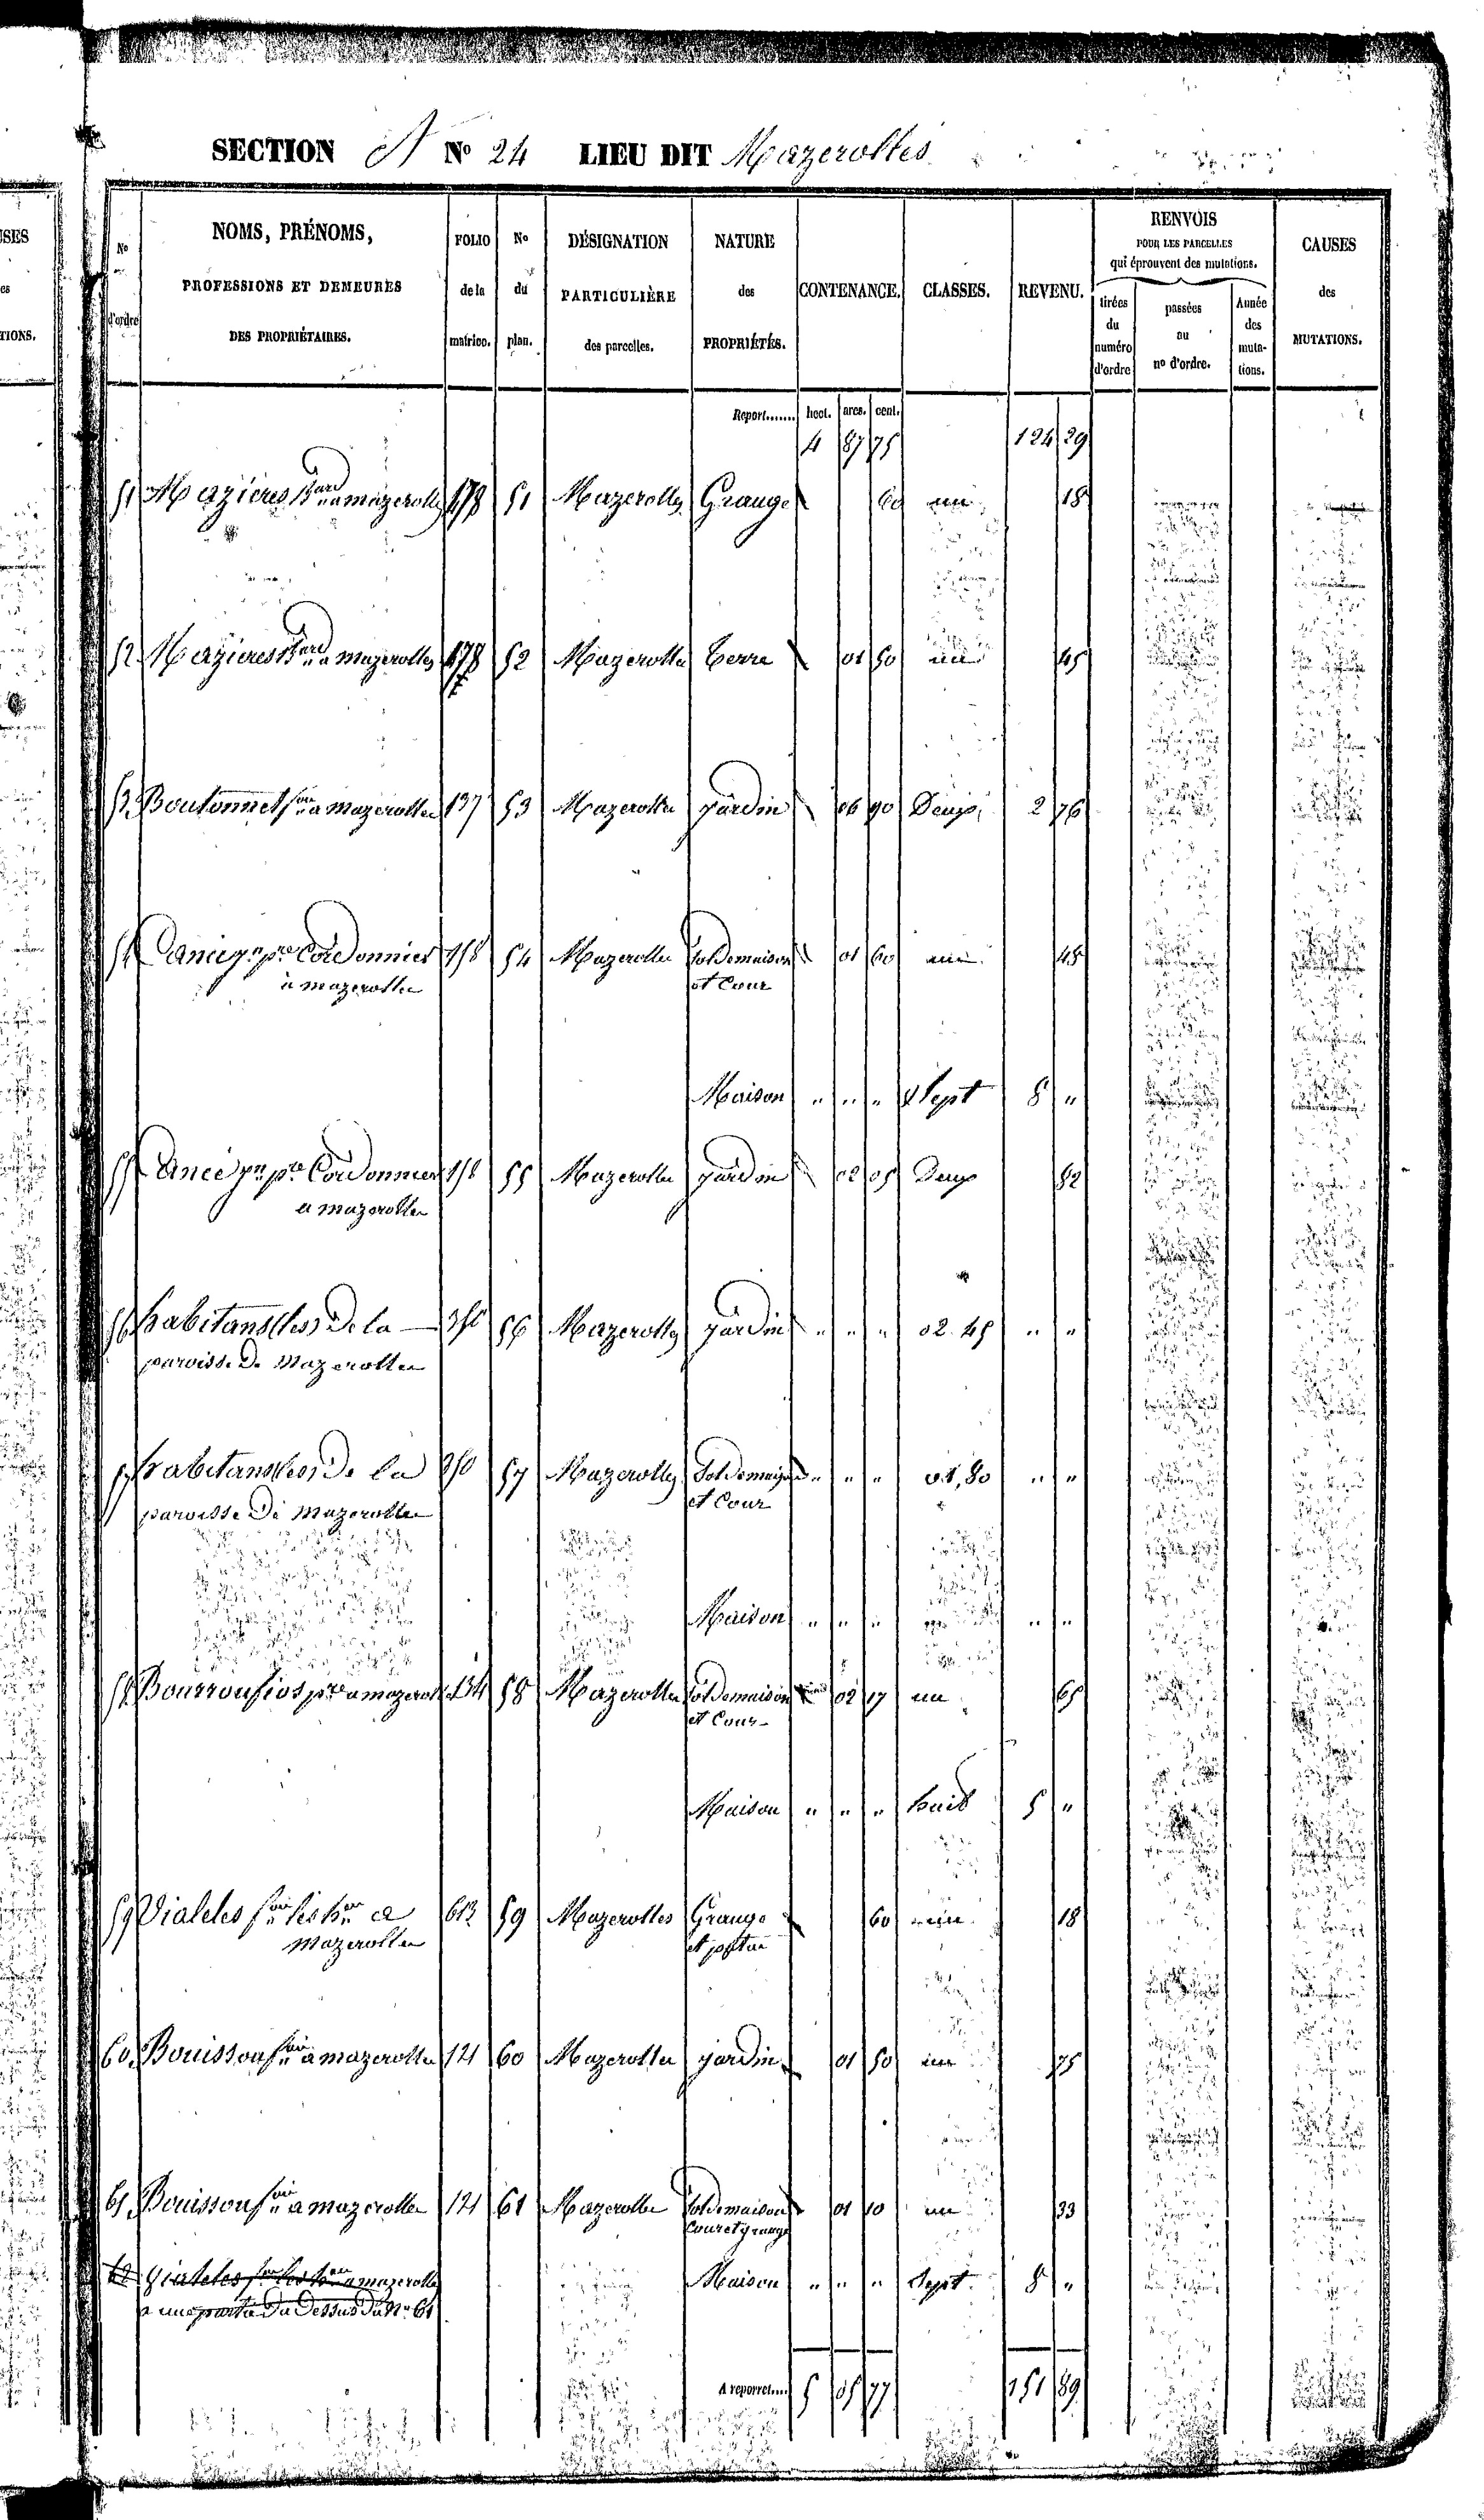 SES
es
TIONS.
SECTION A No 24 LIEU DIT Mazerolles
No d'ordre | NOMS, PRÉNOMS, PROFESSIONS ET DEMEURES DES PROPRIÉTAIRES. | FOLIO de la matrice. | No du plan. | DÉSIGNATION PARTICULIÈRE des parcelles. | NATURE des PROPRIÉTÉS. | CONTENANCE. | CLASSES. | REVENU. | RENVOIS POUR LES PARCELLES qui éprouvent des mutations. tirées du numéro d'ordre | passées au no d'ordre. | Année des mutations. | CAUSES des MUTATIONS.
Report....... hect. ares. cent.
4 87 75 124 29
51 Mazières a mazerolles 478 51 Mazerolles Grange 60 un 18
52 Mazières a mazerolles 478 52 Mazerolles terre 01 50 un 45
53 Boutonnet a mazerolles 137 53 Mazerolles jardin 06 90 Deux 2 76
54 Cordonnier 54 Mazerolles Sol de maison 01 60 un 48
a mazerolles et Cour
Maison " " " Sept 8 "
55 Cordonnier 55 Mazerolles jardin 02 05 Deux 82
a mazerolles
56 habitans (les) De la 56 Mazerolles jardin " " " 02.45 " "
paroisse De Mazerolles
57 habitans (les) De la 57 Mazerolles Sol de maison " " " 01,80 " "
paroisse De Mazerolles et Cour
Maison " " " " "
58 a mazerolles 134 58 Mazerolles Sol de maison 02 17 un 65
et Cour
Maison " " " huit 5 "
59 Vialeles a 613 59 Mazerolles Grange 60 un 18
mazerolles
60 Bouissou a mazerolles 121 60 Mazerolles jardin 01 50 un 75
61 Bouissou a mazerolles 121 61 Mazerolles Sol de maison 01 10 un 33
Cour et grange
62 Vialeles a mazerolles Maison " " " Sept 8 "
a une partie du Dessus du No 61
A reporter.... 5 05 77 151 89